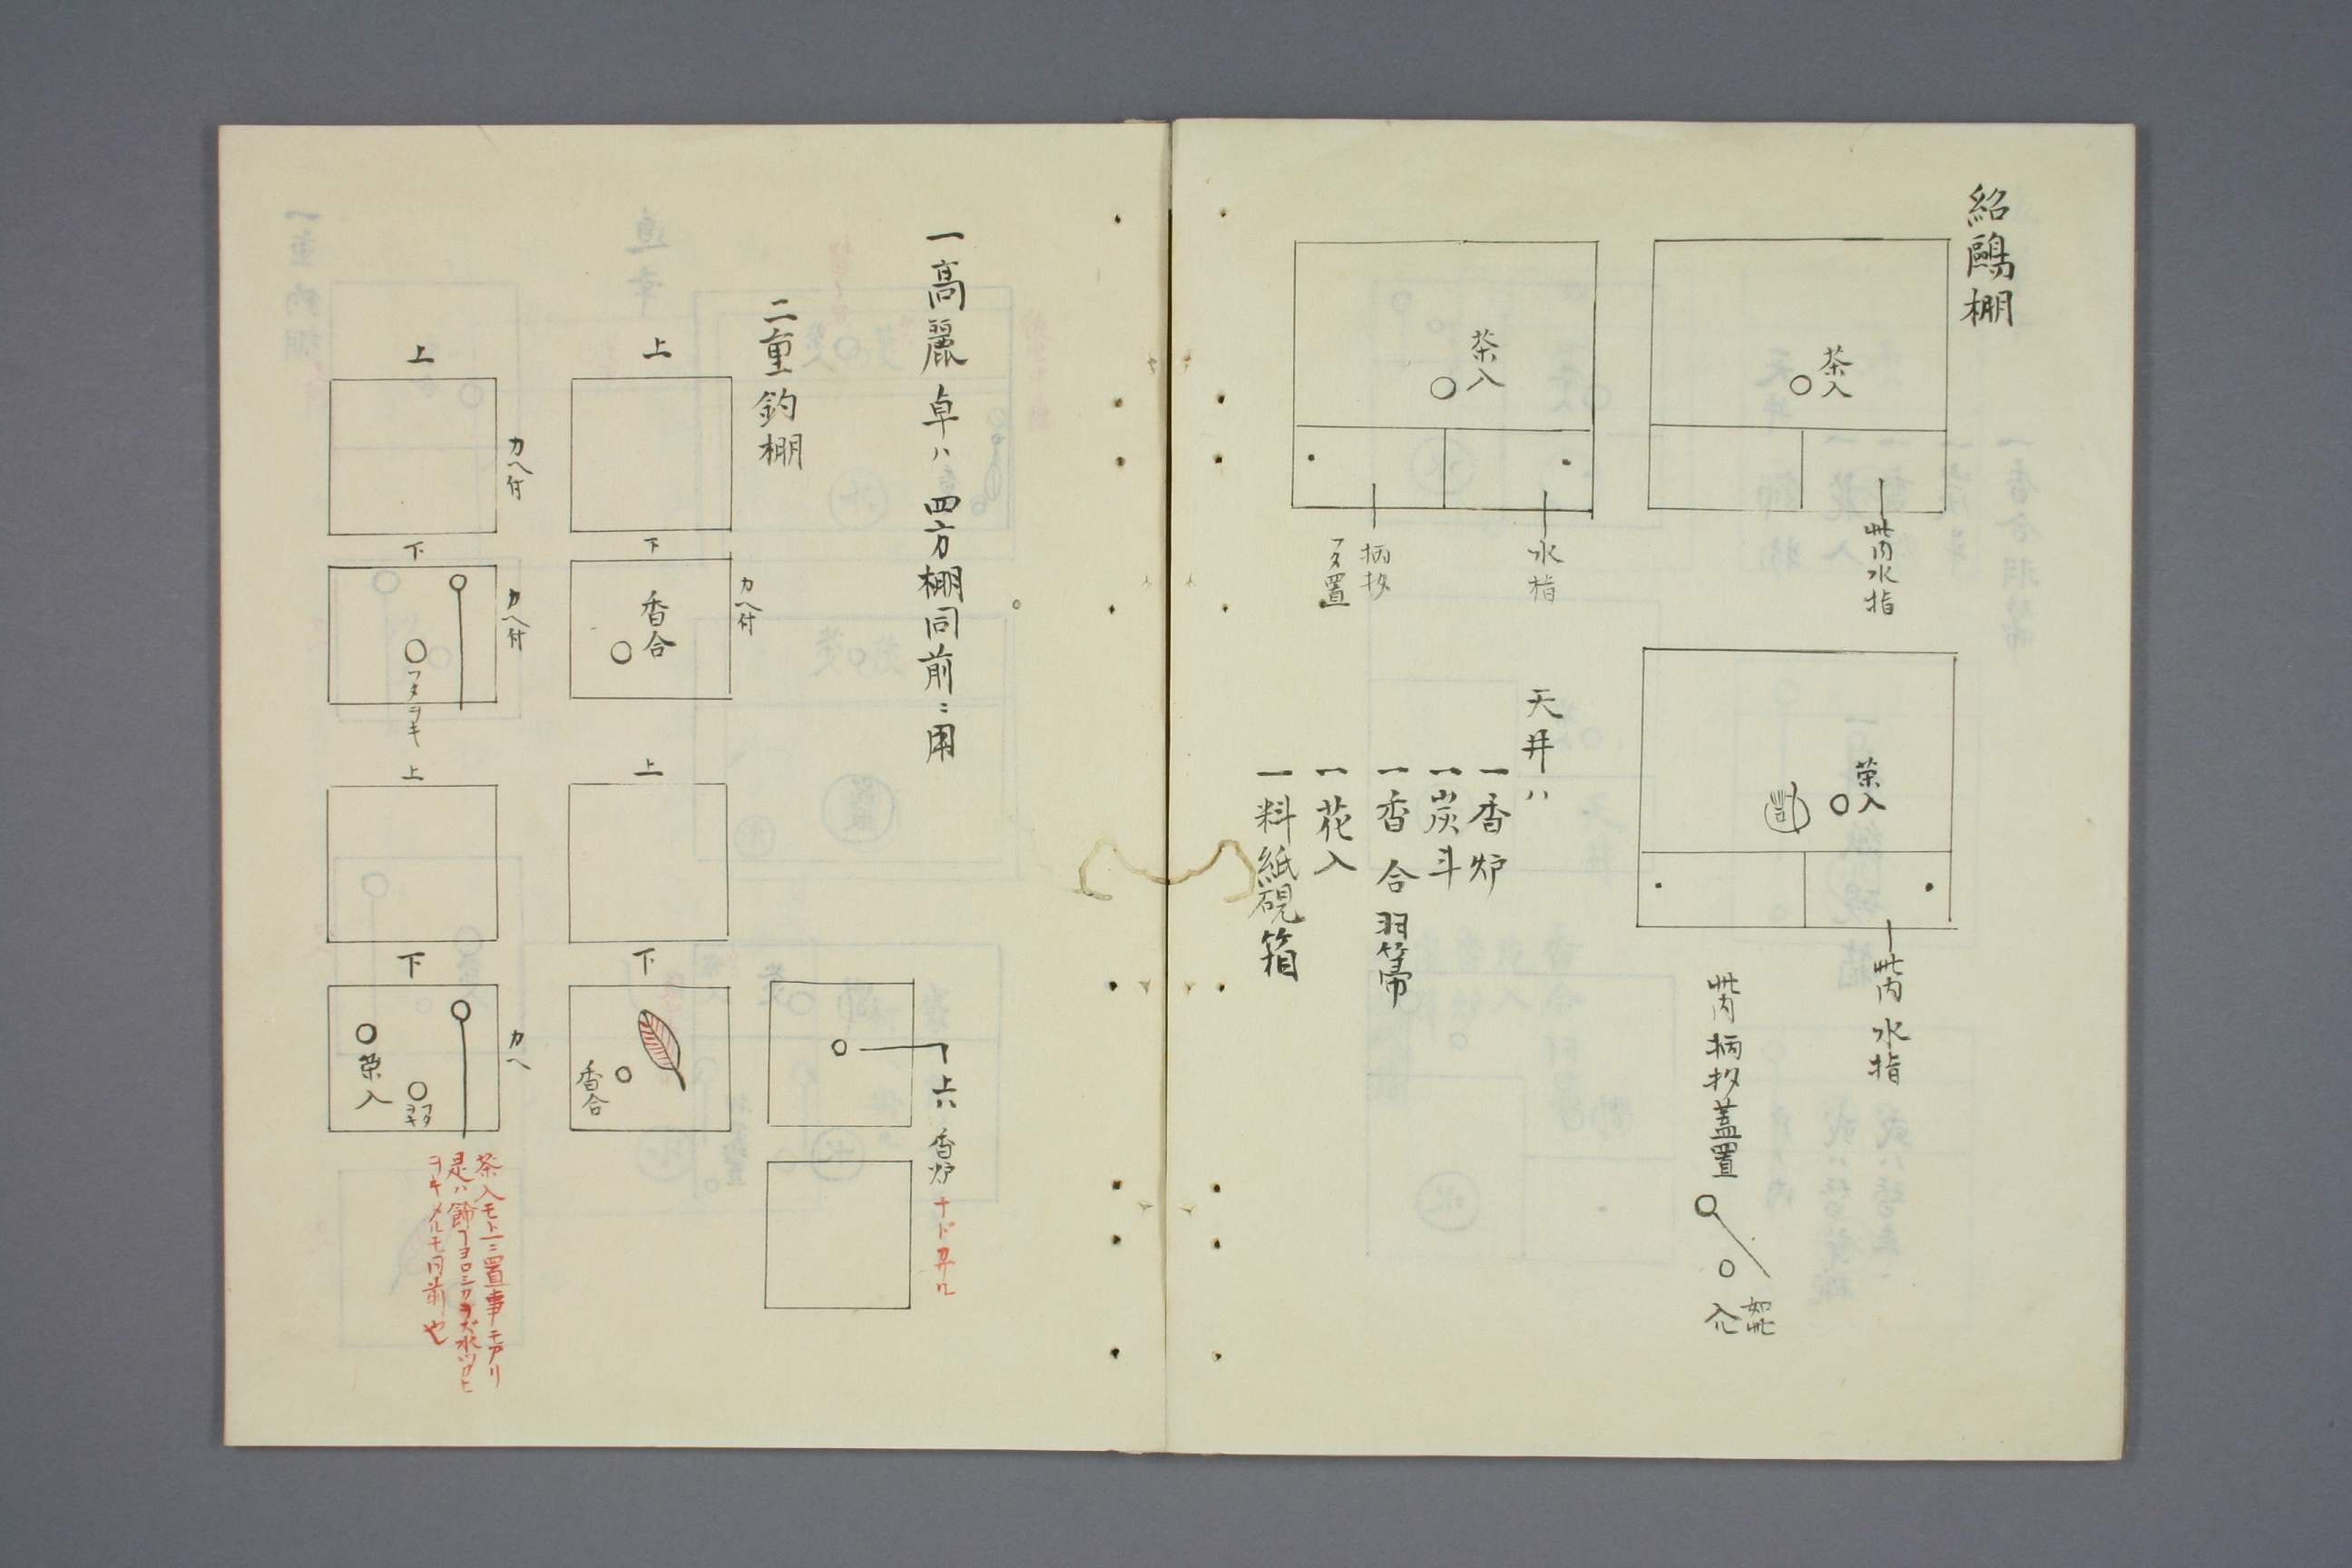 紹鷗棚
茶入
此内水指
茶入
水指
柄杓
フタ置
茶入
此内水指
此内柄杓蓋置
如此
入ル
天井ハ
一香炉
一炭斗
一香合羽箒
一花入
一料紙硯箱
一高麗卓ハ四方棚同前ニ用
二重釣棚
上
下
カヘ付
香合
上
カヘ付
下
カヘ付
フタヲキ
上ハ香炉ナド
上
下
香合
上
下
カヘ
茶入
フタヲキ
茶入モ上ニ置事モアリ
是ハ飾
ヲキ
同前也